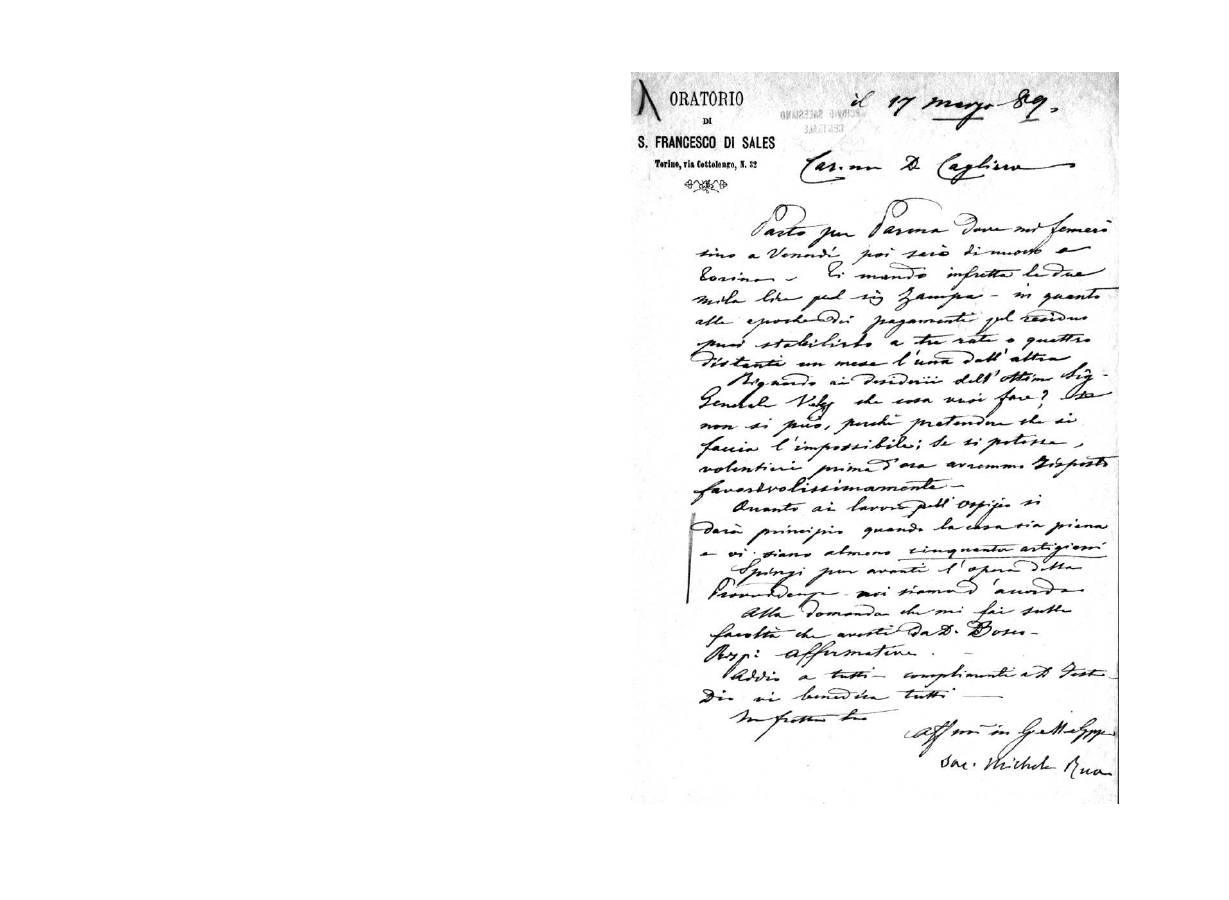 ORATORIO
DI
S. FRANCESCO DI SALES
Torino, via Cottolengo, N. 32
il 17 marzo 89,
ARCHIVIO SALESIANO
CENTRALE
Car.mo D. Cagliero
Parto per Parma dove mi fermerò
sino a Venerdì poi sarò di nuovo a
Torino - Ti mando infretta le due
mila lire pel sig Zampa - in quanto
alle epoche dei pagamenti pel residuo
puoi stabilirlo a tre rate o quattro
distanti un mese l'una dall'altra
Riguardo ai desiderii dell'ottimo Sig.
Generale che cosa vuoi fare? Se
non si può, perchè pretendere che si
faccia l'impossibile; Se si potesse,
volentieri prima d'ora avremmo risposto
favorevolissimamente -
Quanto ai lavori dell'Ospizio si
darà principio quando la casa sia piena
e vi siano almeno cinquanta artigiani
Spingi pur avanti l'opera della
Provvidenza noi siamo d'accordo
Alla domanda che mi fai sulle
facoltà che avesti da D. Bosco -
Resp: Affirmative.
Addio a tutti - complimenti a D.
Dio vi benedica tutti -
In fretta tuo
Aff mo in G. e M.
Sac. Michele Rua